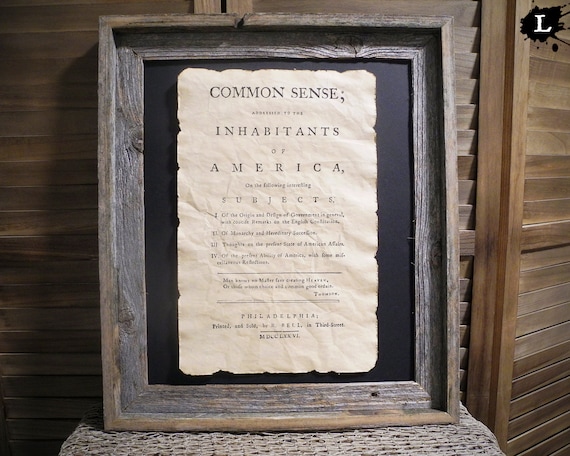 L
COMMON SENSE;
ADDRESSED TO THE
INHABITANTS
OF
AMERICA,
On the following interesting
SUBJECTS,
I. Of the Origin and Design of Government in general,
with concise Remarks on the English Constitution.
II. Of Monarchy and Hereditary Succession.
III. Thoughts on the present State of American Affairs.
IV. Of the present Ability of America, with some mis-
cellaneous Reflections.
Man knows no Master save creating HEAVEN,
Or those whom choice and common good ordain.
THOMSON.
PHILADELPHIA;
Printed, and Sold, by R. BELL, in Third-Street.
MDCCLXXVI.